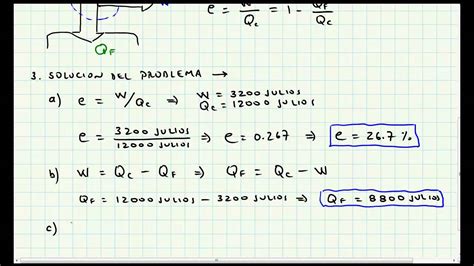 e = W/Qc = 1 - QF/Qc
QF
3. SOLUCION DEL PROBLEMA →
a) e = W/Qc ⇒ W = 3200 JULIOS
Qc = 12000 JULIOS
e = 3200 JULIOS / 12000 JULIOS ⇒ e = 0.267 ⇒ e = 26.7 %
b) W = Qc - QF ⇒ QF = Qc - W
QF = 12000 JULIOS - 3200 JULIOS ⇒ QF = 8800 JULIOS
c)